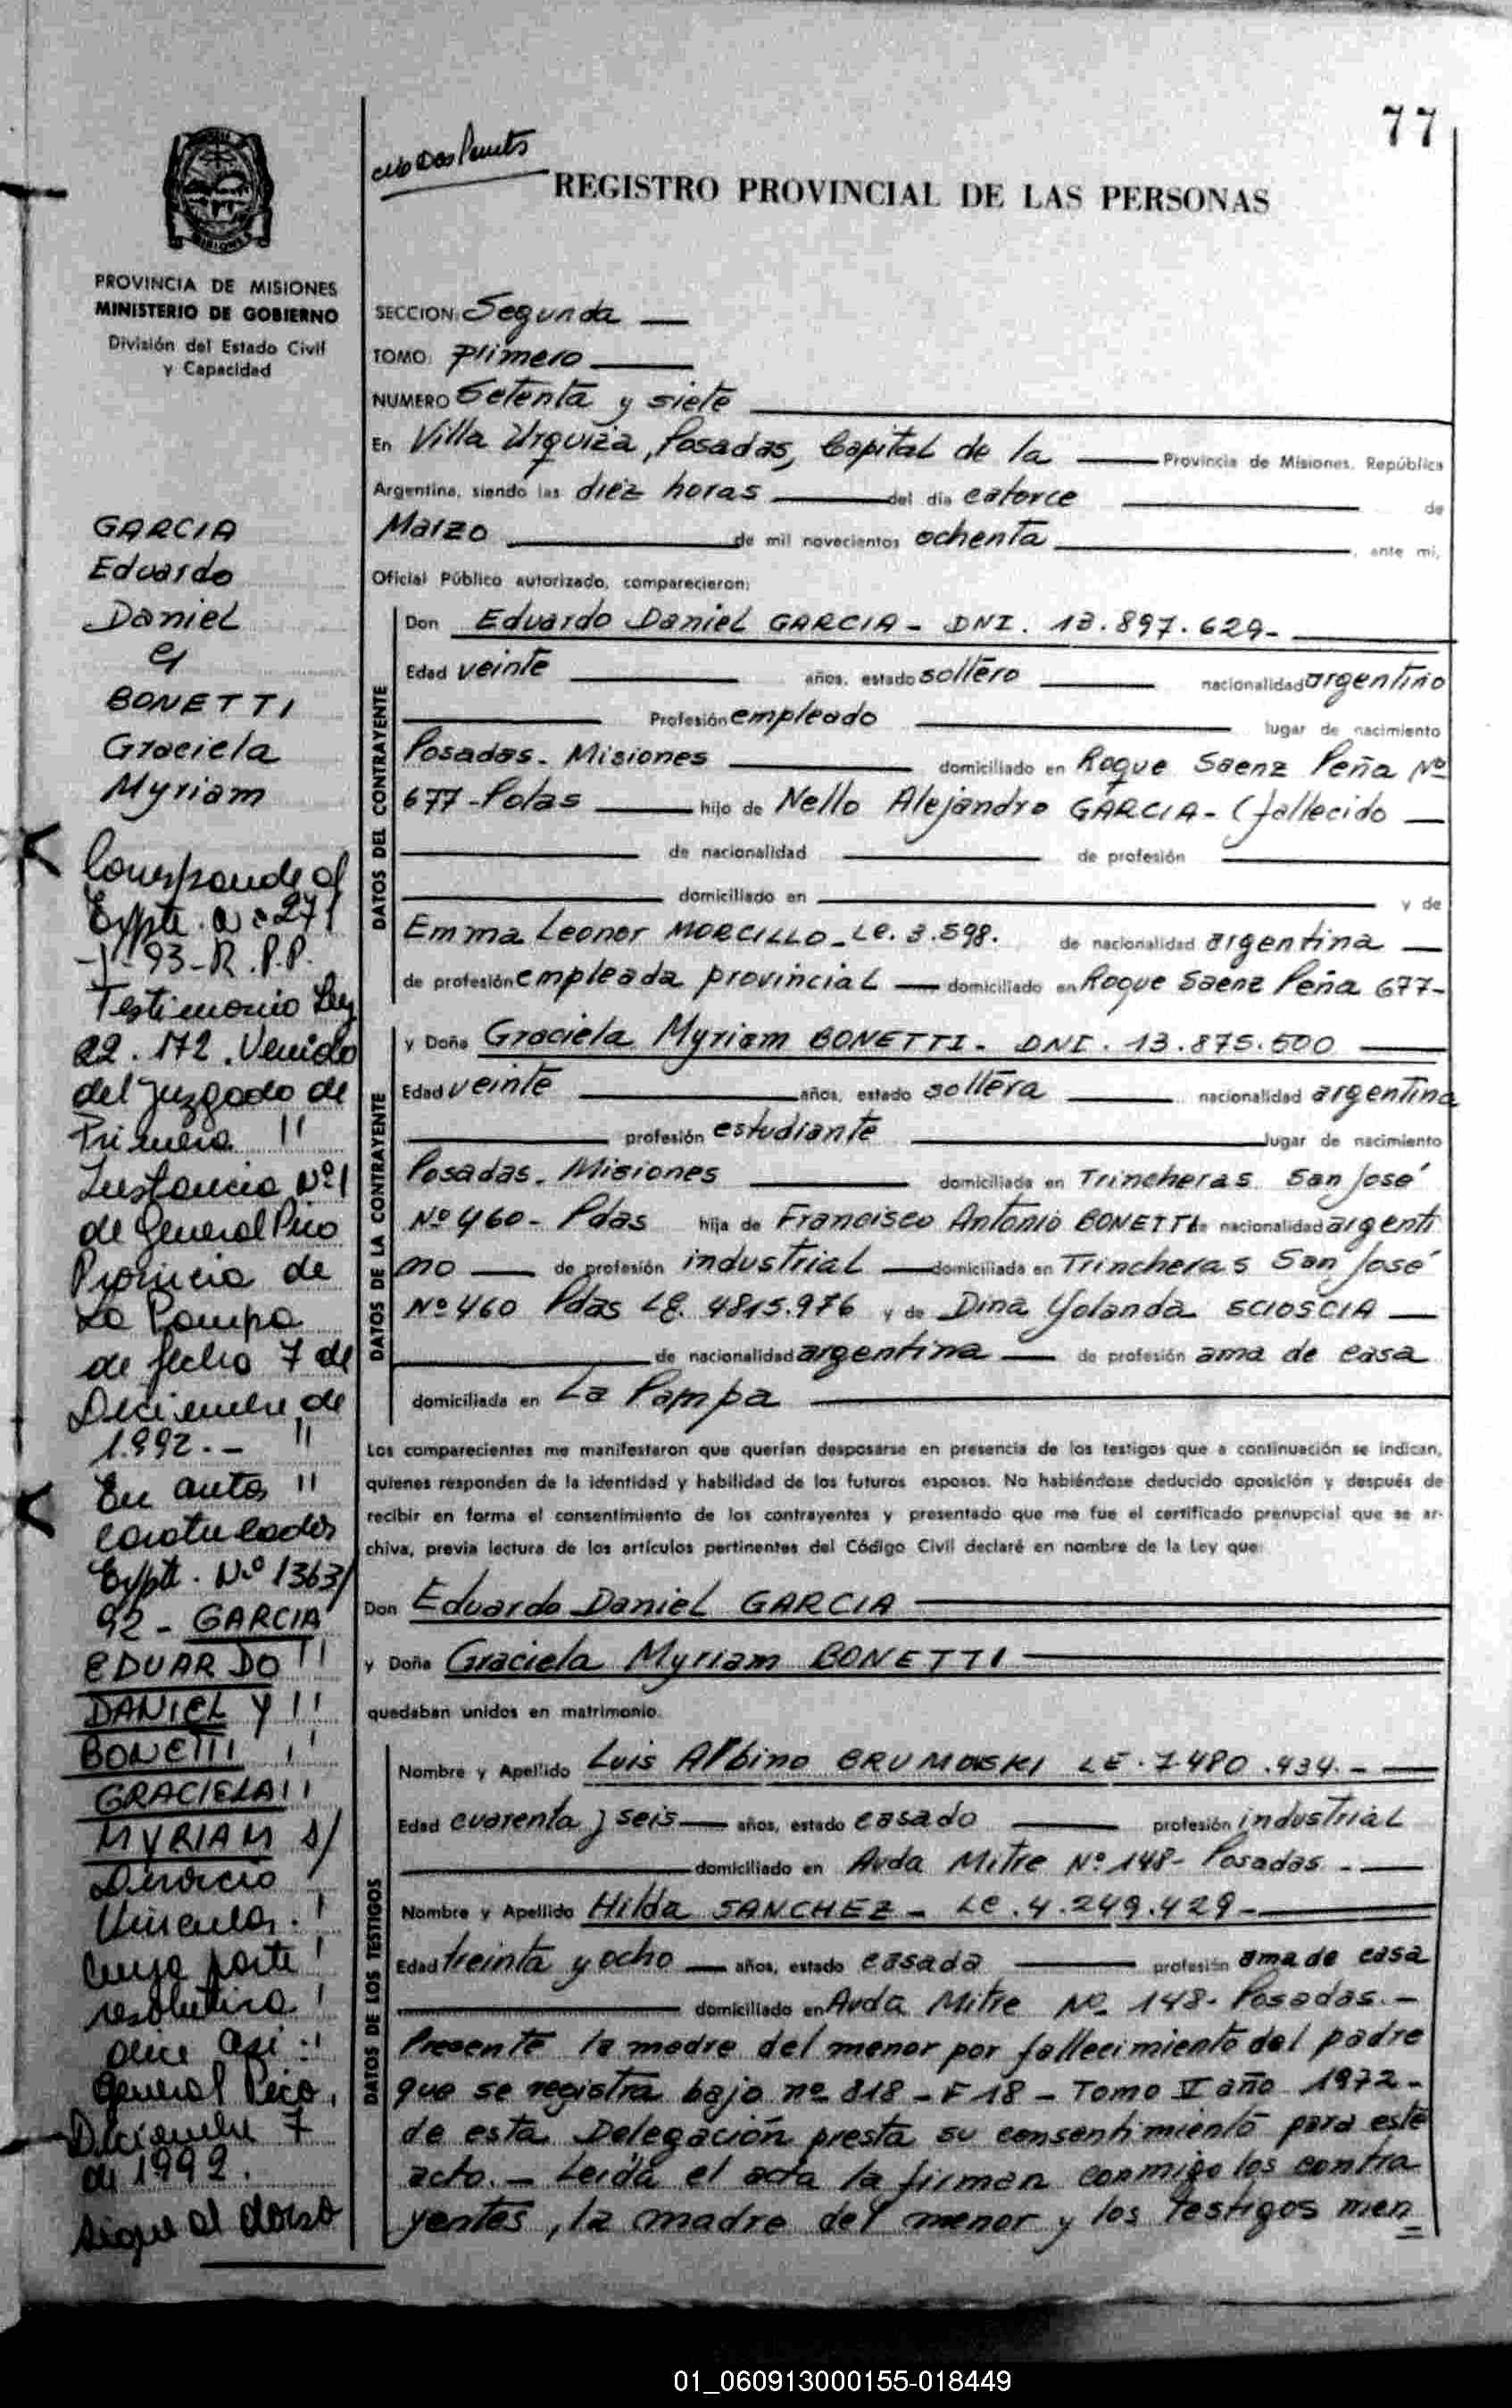 77
REGISTRO PROVINCIAL DE LAS PERSONAS
MISIONES
PROVINCIA DE MISIONES
MINISTERIO DE GOBIERNO
División del Estado Civil
y Capacidad
GARCIA
Eduardo
Daniel
y
BONETTI
Graciela
Myriam
Corresponde al
Expte. 271
93-R.P.P.
Testimonio Ley
22.172. Venido
del Juzgado de
Primera "
Instancia Nº 1
de General Pico
Provincia de
La Pampa
de fecha 7 de
Diciembre de
1.992.- "
En autos "
caratulados
Expte. Nº 1363/
92 - GARCIA
EDUARDO "
DANIEL Y "
BONETTI "
GRACIELA "
MYRIAM s/
Divorcio
Vincular.
Cuya parte
resolutiva
dice así:
General Pico,
Diciembre 7
de 1992.
Sigue al dorso
SECCION: Segunda —
TOMO: Primero
NUMERO Setenta y siete
En Villa Urquiza, Posadas, Capital de la — Provincia de Misiones, República
Argentina, siendo las diez horas — del día catorce — de
Marzo — de mil novecientos ochenta —, ante mi,
Oficial Público autorizado, comparecieron:
DATOS DEL CONTRAYENTE
Don Eduardo Daniel GARCIA - DNI. 13.897.629-
Edad veinte — años, estado soltero — nacionalidad argentino
— Profesión empleado — lugar de nacimiento
Posadas - Misiones — domiciliado en Roque Saenz Peña Nº
677-Pdas — hijo de Nello Alejandro GARCIA - (fallecido —
— de nacionalidad — de profesión —
— domiciliado en — y de
Emma Leonor MORCILLO - LC. 3.598. de nacionalidad argentina —
de profesión empleada provincial — domiciliado en Roque Saenz Peña 677-
DATOS DE LA CONTRAYENTE
y Doña Graciela Myriam BONETTI - DNI. 13.875.500 —
Edad veinte — años, estado soltera — nacionalidad argentina
— profesión estudiante — lugar de nacimiento
Posadas - Misiones — domiciliada en Trincheras San José
Nº 460 - Pdas hija de Francisco Antonio BONETTI de nacionalidad argenti
no — de profesión industrial — domiciliada en Trincheras San José
Nº 460 Pdas LE. 4815.976 y de Dina Yolanda SCIOSCIA —
— de nacionalidad argentina — de profesión ama de casa
domiciliada en La Pampa —
Los comparecientes me manifestaron que querían desposarse en presencia de los testigos que a continuación se indican,
quienes responden de la identidad y habilidad de los futuros esposos. No habiéndose deducido oposición y después de
recibir en forma el consentimiento de los contrayentes y presentado que me fue el certificado prenupcial que se ar-
chiva, previa lectura de los artículos pertinentes del Código Civil declaré en nombre de la Ley que:
Don Eduardo Daniel GARCIA —
y Doña Graciela Myriam BONETTI —
quedaban unidos en matrimonio.
DATOS DE LOS TESTIGOS
Nombre y Apellido Luis Albino BRUMOVSKI LE. 7.480.434.-
Edad cuarenta y seis — años, estado casado — profesión industrial
— domiciliado en Avda Mitre Nº 148- Posadas.-
Nombre y Apellido Hilda SANCHEZ - LC. 4.249.429-
Edad treinta y ocho — años, estado casada — profesión ama de casa
— domiciliado en Avda Mitre Nº 148- Posadas.-
Presente la madre del menor por fallecimiento del padre
que se registra bajo nº 818 - F 18 - Tomo V año 1972-
de esta Delegación presta su consentimiento para este
acto.- Leída el acta la firman conmigo los contra
yentes, la madre del menor y los testigos men
01_060913000155-018449